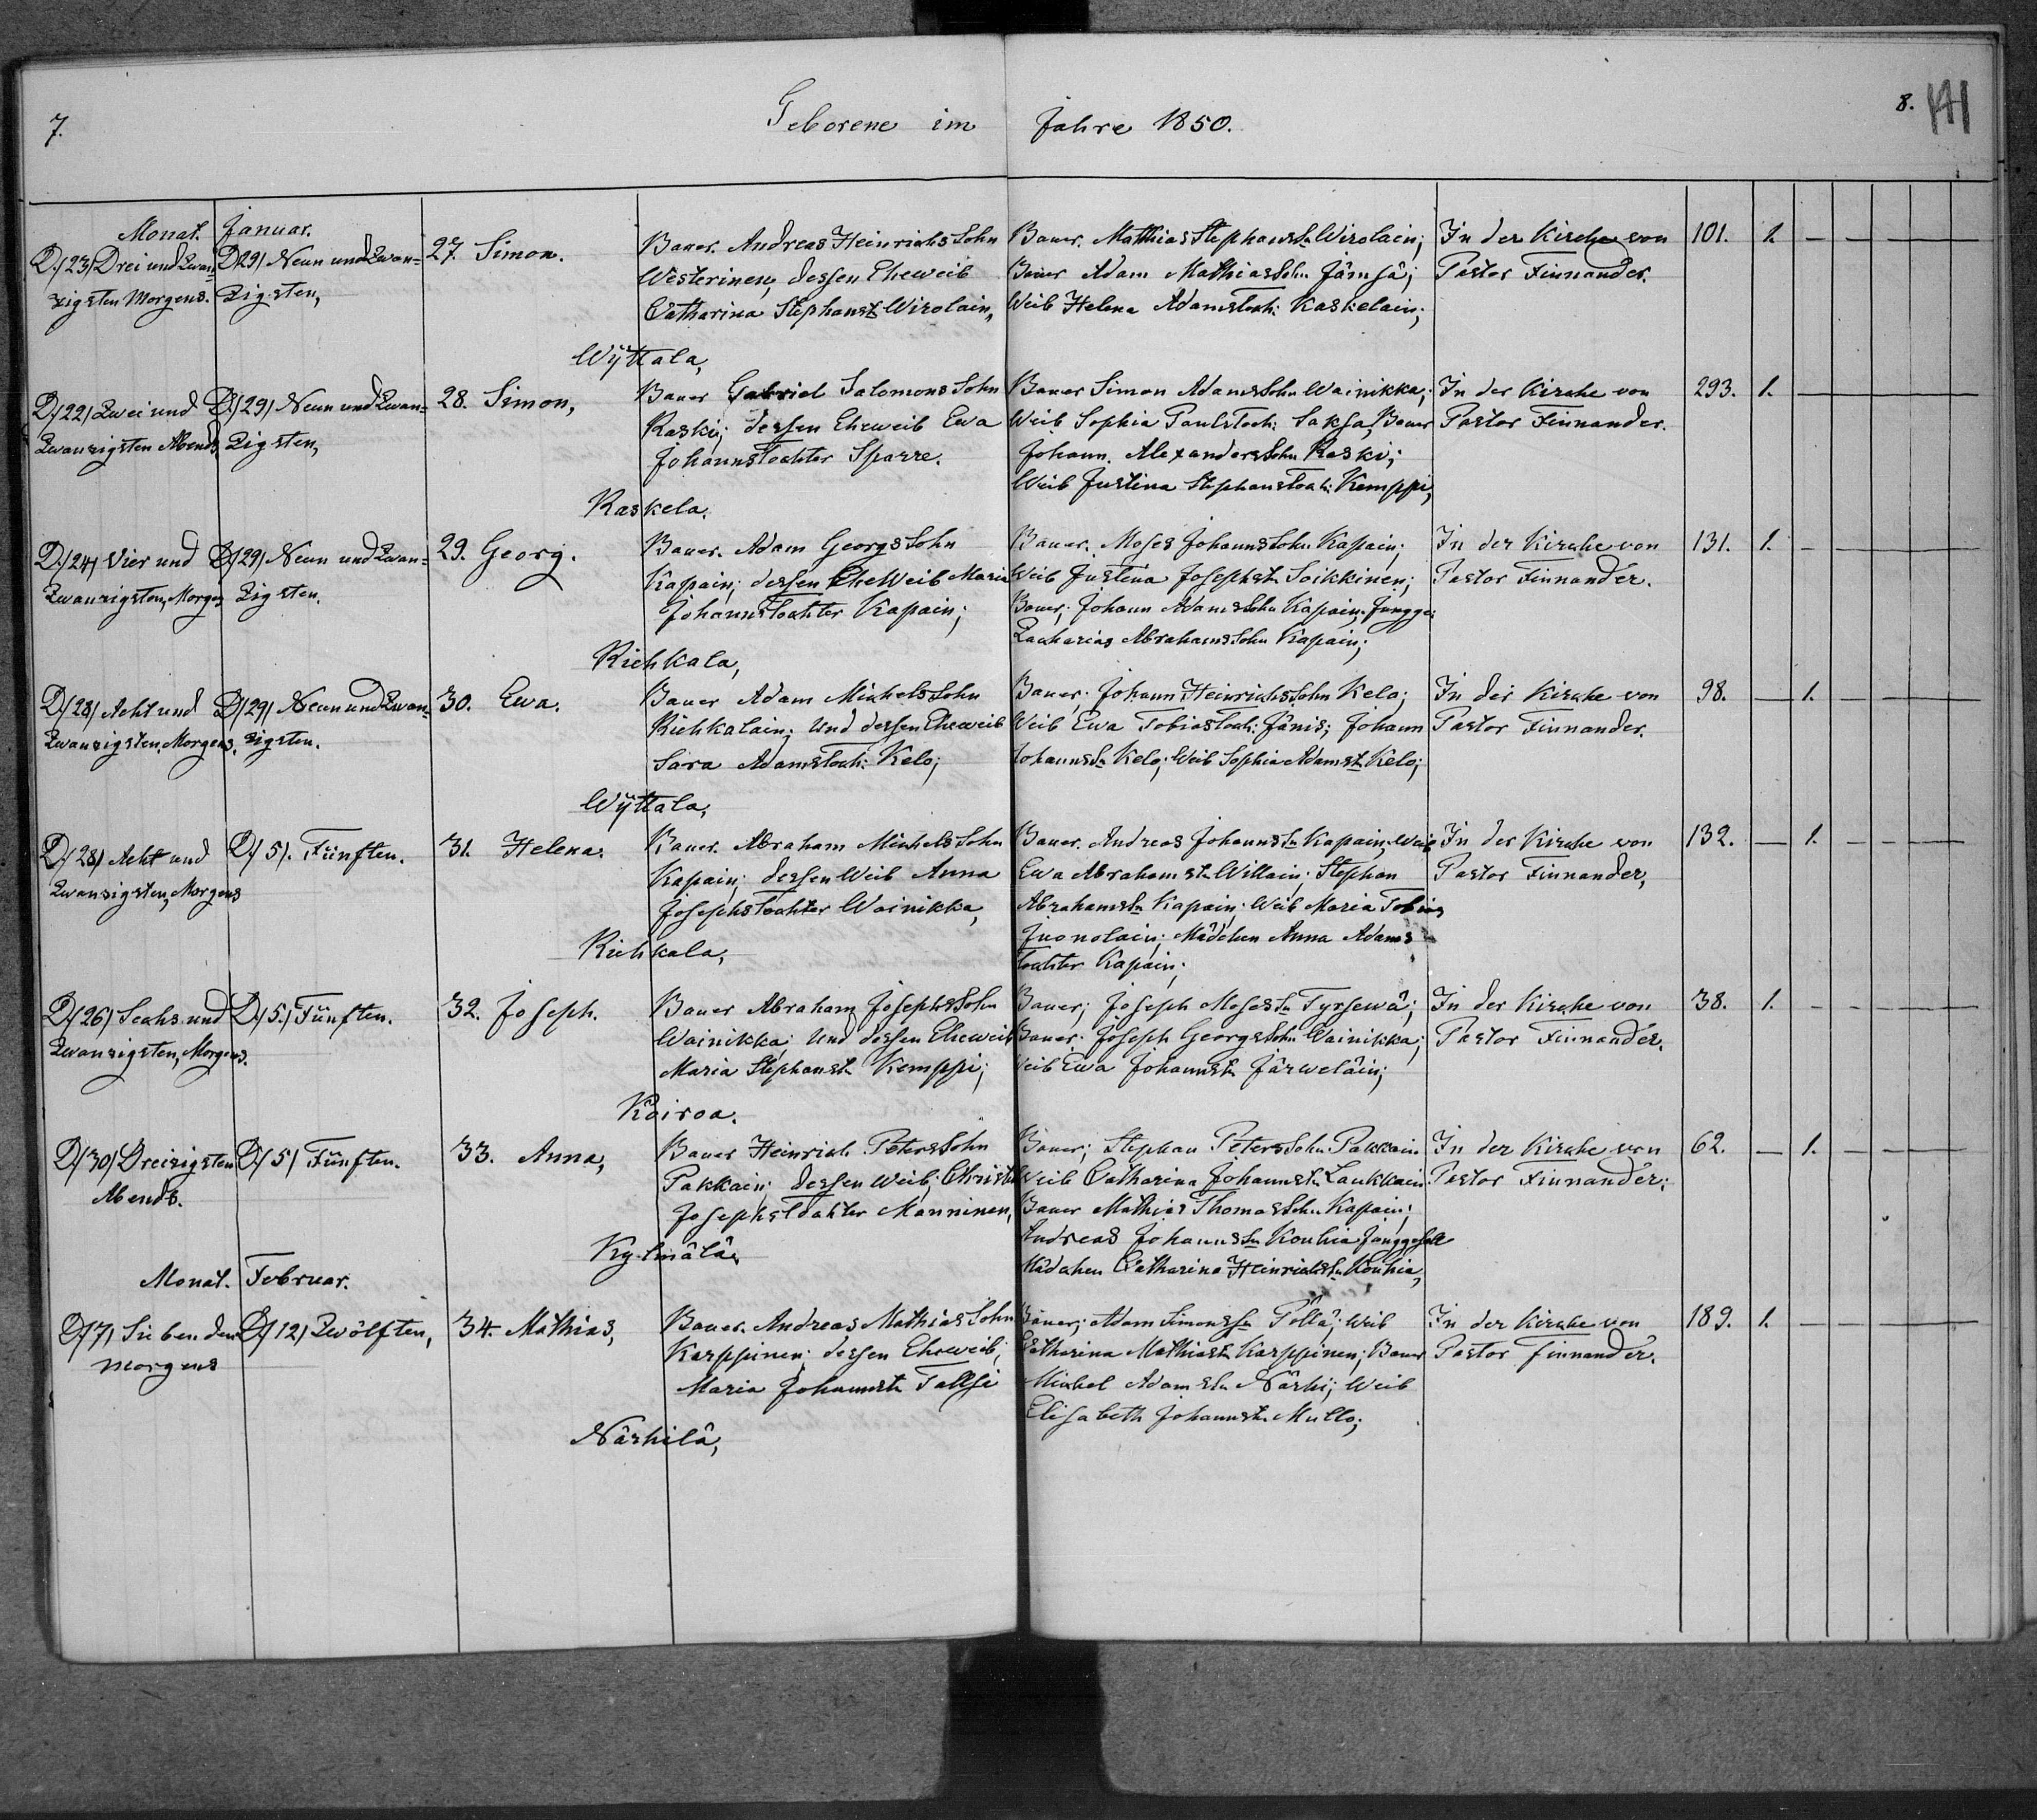 7.
Geborene im Jahre 1850.
8.
Monat. Januar.
D./23/ Drei und Zwan= D/29/ Neun und Zwan= 27. Simon. Bauer. Andreas Heinrichs Sohn Bauer. Matthias Stephans Sn Wirolain; In der Kirche von 101. 1. — —
zigsten Morgens. Zigsten, Westerinen, dessen Eheweib Bauer Adam Mathias Sohn Jämsä; Pastor Finnander.
Catharina Stephanst. Wirolain, Weib Helena Adamstoch: Kaskelain;
Wÿttala,
D/22/ Zwei und D/29/ Neun und Zwan= 28. Simon, Bauer Gabriel Salomons Sohn Bauer Simon Adams Sohn Wainikka; In der Kirche von 293. 1. —
Zwanzigsten Abends Zigsten, Raski; dessen Eheweib Ewa Weib Sophia Paulstoch: Saksa, Bauer Pastor Finnander.
Johannstochter Sparre. Johann. Alexanders Sohn Raski;
Weib Justina Stephanstoch: Kemppi,
Raskela.
D./24/ Vier und D/29/ Neun und Zwan= 29. Georg. Bauer. Adam Georgs Sohn Bauer. Moses Johanns Sohn Kapain; In der Kirche von 131. 1. — —
Zwanzigsten, Morgens Zigsten. Kapain; dessen Eheweib Maria Weib Justina Josephst. Soikkinen; Pastor Finnander.
Johannstochter Kapain; Bauer; Johann Adams Sohn Kapain; Jungge:
Zacharias Abrahams Sohn Kapain;
Riehkala,
D/28/ Acht und D/29/ Neun und Zwan= 30. Ewa. Bauer Adam Michels Sohn Bauer; Johann Heinrichs Sohn Kelo; In der Kirche von 98. — 1. —
Zwanzigsten, Morgens. zigsten. Riehkalain; Und dessen Eheweib Weib Ewa Tobiastoch: Jänis; Johann Pastor Finnander.
Sara Adamstoch: Kelo; Johanns Sn Kelo; Weib Sophia Adamst Kelo;
Wÿttala,
D/28/ Acht und D/5/. Fünften. 31. Helena. Bauer. Abraham Michels Sohn Bauer. Andreas Johanns Sn Kapain; Weib In der Kirche von 132. — 1. —
Zwanzigsten, Morgens Kapain; dessen Weib Anna Ewa Abrahamst. Willain; Stephan Pastor Finnander,
Josephstochter Wainikka, Abrahamssn Kapain; Weib Maria Tobias
Juonolain; Mädchen Anna Adams
tochter Kapain;
Riehkala,
D/26/ Sechs und D/5./ Fünften. 32. Joseph. Bauer Abraham Josephs Sohn Bauer; Joseph Moses Sn Tyrsewä; In der Kirche von 38. 1. — —
Zwanzigsten, Morgens. Wainikka; Und dessen Eheweib Bauer. Joseph Georgs Sohn Wainikka; Pastor Finnander.
Maria Stephanst. Kemppi; Weib Ewa Johannst. Järweläin;
Koiroa.
D/30/ Dreizigsten D/5/ Fünften. 33. Anna, Bauer Heinrich Peters Sohn Bauer; Stephan Peters Sohn Pakkain In der Kirche von 62. — 1. —
Abends. Pakkain; dessen Weib; Christi Weib Catharina Johannst. Laukkain. Pastor Finnander;
Josephstochter Manninen, Bauer Mathias Thomas Sohn Kapain;
Andreas Johanns Sn Kouhia Junggesell
Mädchen Catharina Heinrichst. Kouhia,
Kylmälä,
Monat. Februar.
D/7/ Siebenden D/12/ Zwölften, 34. Mathias, Bauer. Andreas Mathias Sohn Bauer; Adam Simons Sn Pöllä; Weib In der Kirche von 189. 1. —
Morgens Karppinen; dessen Eheweib; Catharina Mathiast. Karppinen; Bauer Pastor Finnander.
Maria Johannst. Tallsi Michel Adams Sn Närhi; Weib
Elisabeth Johannst. Mullo;
Närhilä,